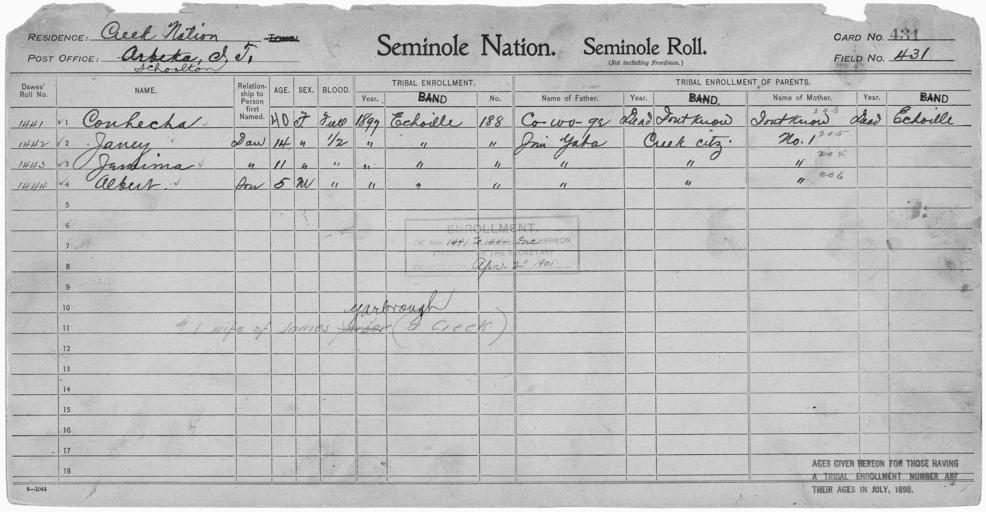 RESIDENCE: Creek Nation Town
Seminole Nation. Seminole Roll.
(Not including Freedmen.)
CARD NO. 431
POST OFFICE: Arbeka, I. T.
Schoolton
FIELD NO. 431
Dawes' Roll No. NAME. Relationship to Person first Named. AGE. SEX. BLOOD. TRIBAL ENROLLMENT. TRIBAL ENROLLMENT OF PARENTS.
Year. BAND No. Name of Father. Year. BAND. Name of Mother. Year. BAND
1441 1 Conhecha 40 F Full 1897 Echoille 188 Co-wo-ge Dead Dont know Dont know 203 Dead Echoille
1442 2 Janey Dau 14 " 1/2 " " " Jim Yaha Creek citz. No. 1 205
1443 3 Jamima " 11 " " " " " " " " 204
1444 4 Albert Son 5 M " " " " " " " 206
5
6
ENROLLMENT.
OF NOS. 1441 to 1444 Inc HEREON
7
THE SECRETARY
8
Apr. 2" 1901
9
10 Yarbrough
11 #1 wife of James (a Creek)
12
13
14
15
16
17
18
AGES GIVEN HEREON FOR THOSE HAVING
A TRIBAL ENROLLMENT NUMBER ARE
THEIR AGES IN JULY, 1898.
6—1044